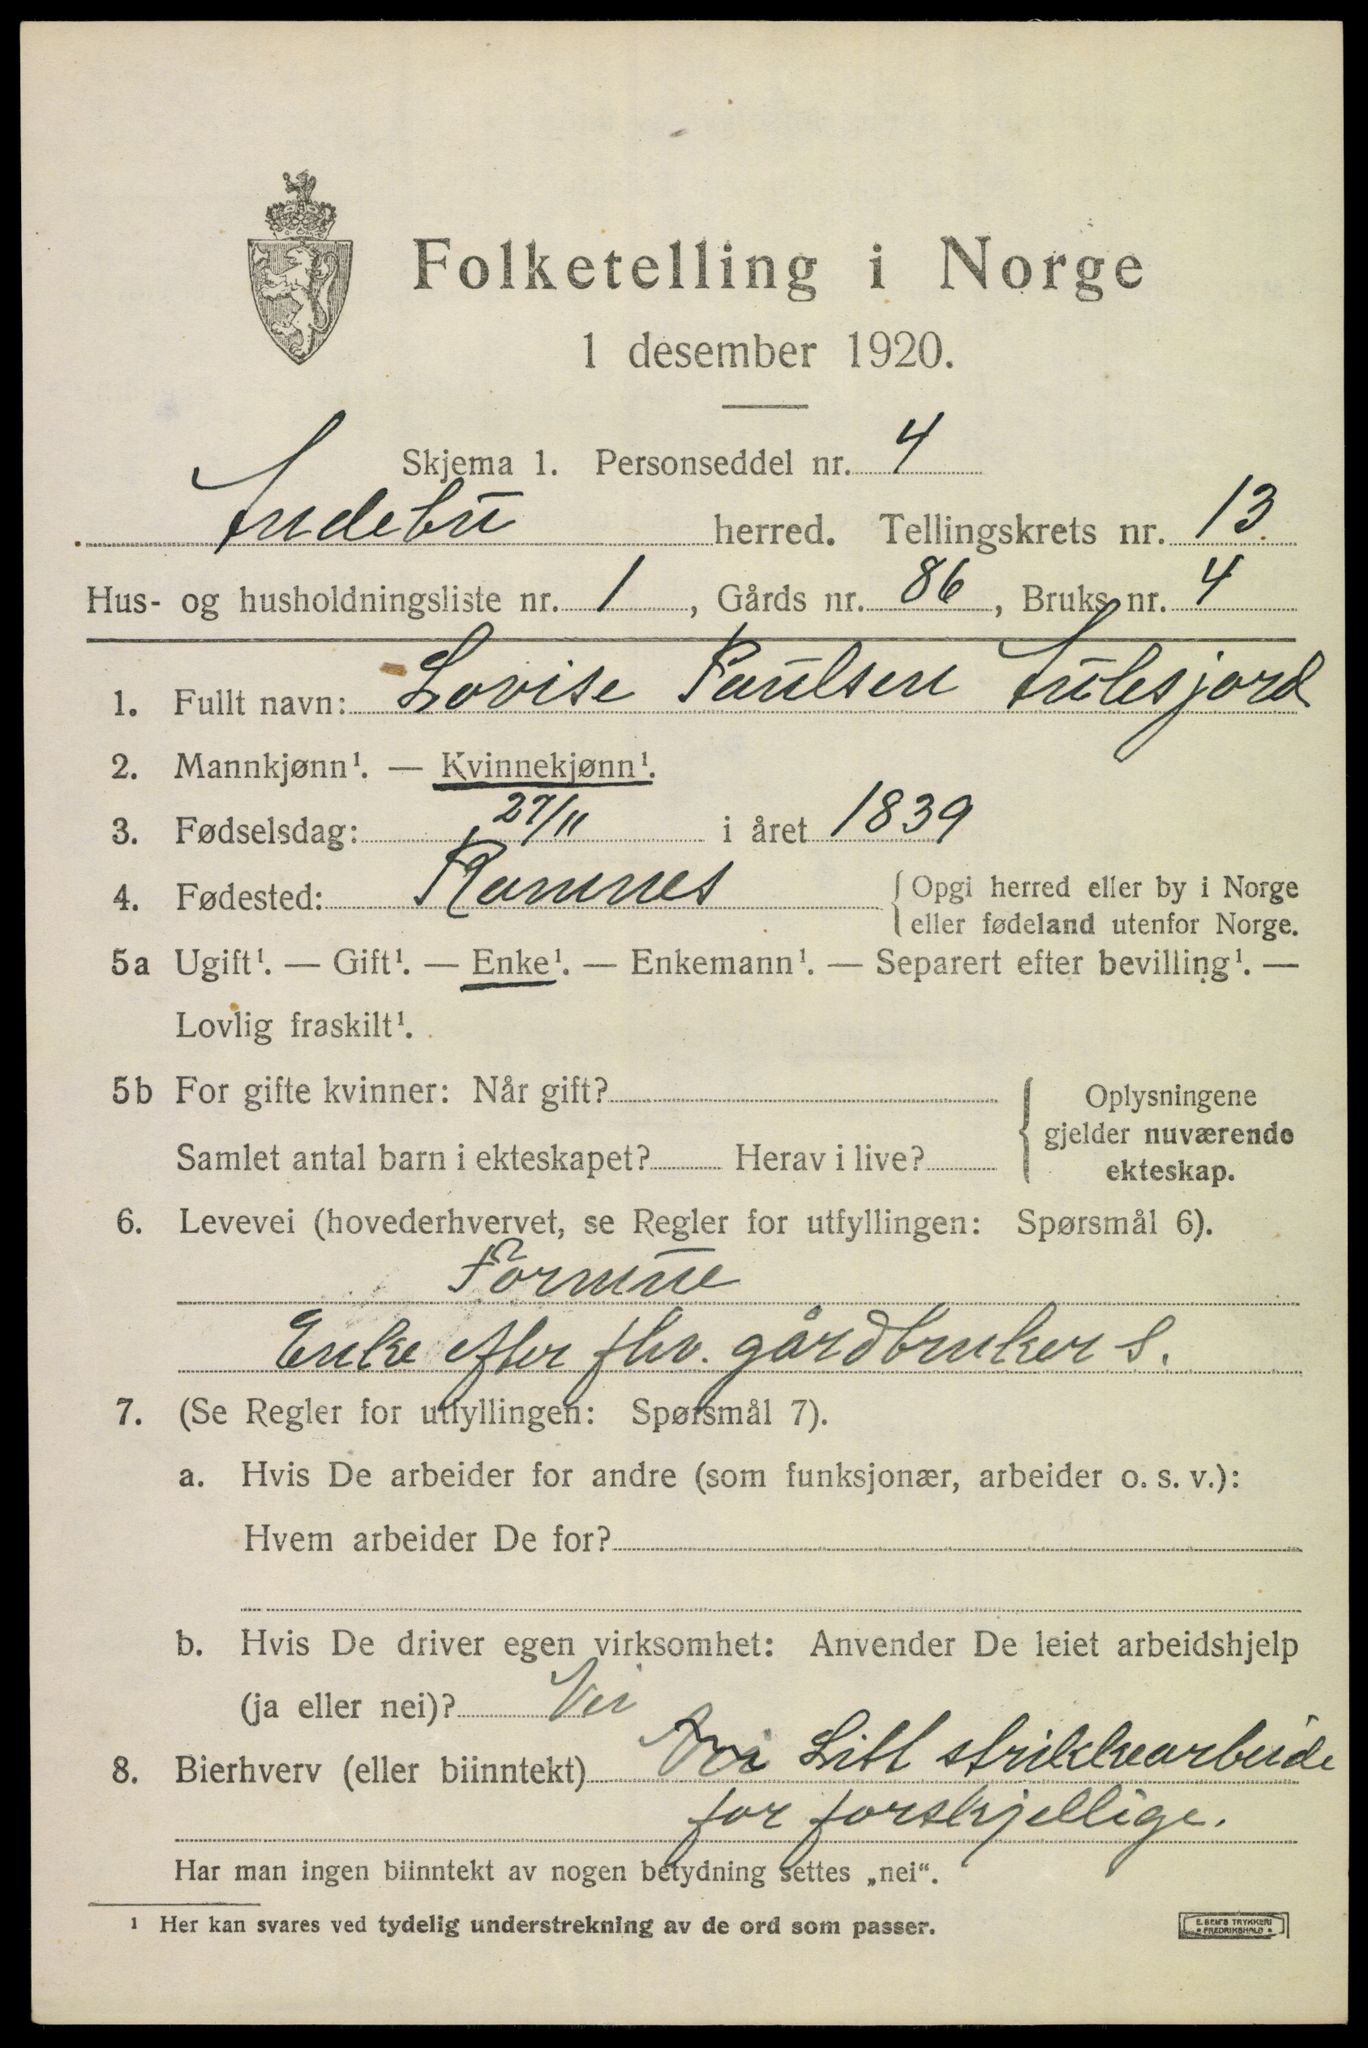 Folketelling i Norge
1 desember 1920.
Skjema 1. Personseddel nr. 4
Andebu herred. Tellingskrets nr. 13.
Hus- og husholdningsliste nr. 1, Gårds nr. 86, Bruks nr. 4
1. Fullt navn: Lovise Paulsen Aulesjord
2. Mannkjønn¹. — Kvinnekjønn¹.
3. Fødselsdag: 27/11 i året 1839
4. Fødested: Ramnes { Opgi herred eller by i Norge
eller fødeland utenfor Norge.
5a Ugift¹. — Gift¹. — Enke¹. — Enkemann¹. — Separert efter bevilling¹. —
Lovlig fraskilt¹.
5b For gifte kvinner: Når gift?
Samlet antal barn i ekteskapet? Herav i live?
Oplysningene
gjelder nuværende
ekteskap.
6. Levevei (hovederhvervet, se Regler for utfyllingen: Spørsmål 6).
Formue
Enke efter fhv. gårdbruker S.
7. (Se Regler for utfyllingen: Spørsmål 7).
a. Hvis De arbeider for andre (som funksjonær, arbeider o. s. v.):
Hvem arbeider De for?
b. Hvis De driver egen virksomhet: Anvender De leiet arbeidshjelp
(ja eller nei)? Nei
8. Bierhverv (eller biinntekt) Litt strikkearbeide
for forskjellige.
Har man ingen biinntekt av nogen betydning settes „nei“.
¹ Her kan svares ved tydelig understrekning av de ord som passer.
E. SEM'S TRYKKERI
FREDRIKSHALD